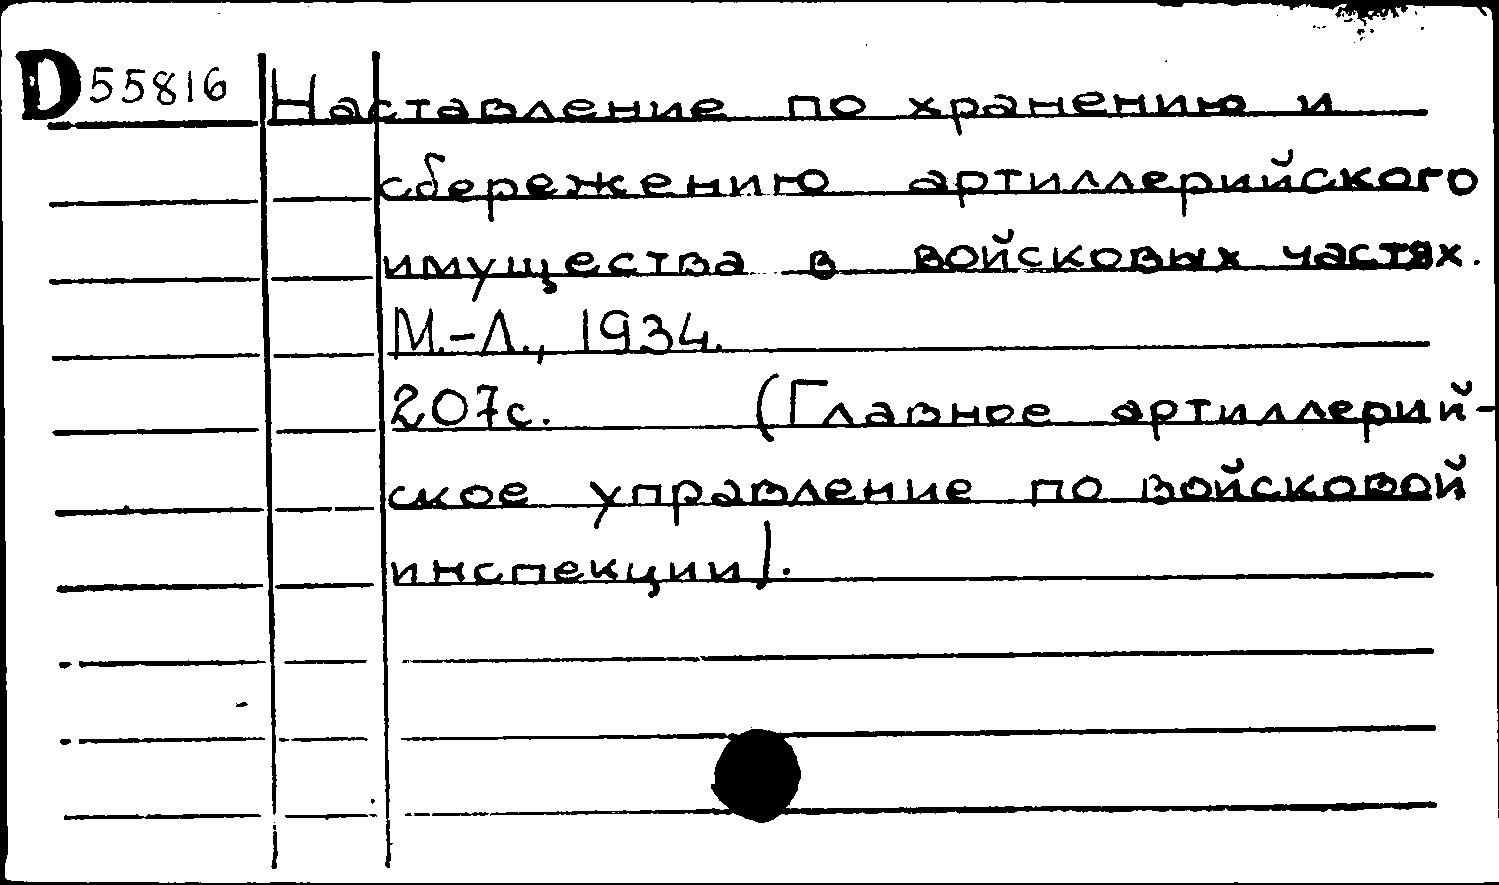 D 55816 Наставление по хранению и
сбережению артиллерийского
имущества в войсковых частях.
М.-Л., 1934.
207с. (Главное артиллерий-
ское управление по войсковой
инспекции).